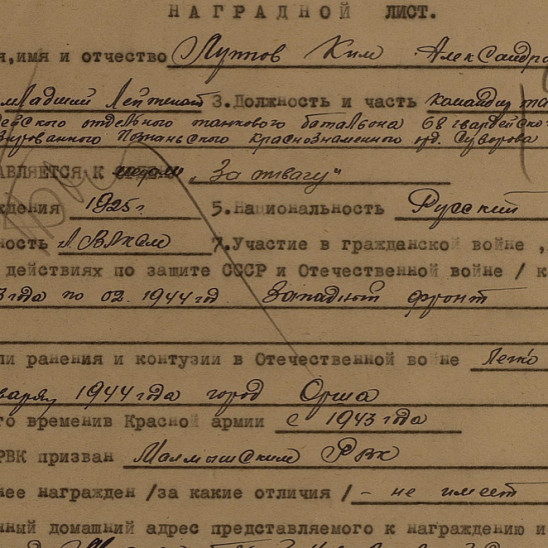 НАГРАДНОЙ ЛИСТ.
я, имя и отчество Луппов Ким Александро
младший лейтенант 3.Должность и часть командир та
отдельного танкового батальона 68 гвардейско
Познаньского Краснознаменного орд. Суворова
АВЛЯЕТСЯ К медали „За отвагу"
ждения 1925г. 5.Национальность Русский
ность ЛВЛКСМ 7.Участие в гражданской войне ,
действиях по защите СССР и Отечественной войне / к
3 года по 02.1944 год Западный фронт
ли ранения и контузии в Отечественной войне Легко
варя 1944 года город Орша
го временив Красной армии с 1943 года
РВК призван Малмыжским РВК
нее награжден /за какие отличия / - не имеет
нный домашний адрес представляемого к награждению и